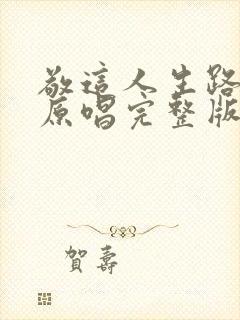 敬這人生路
原唱完整版
賀壽